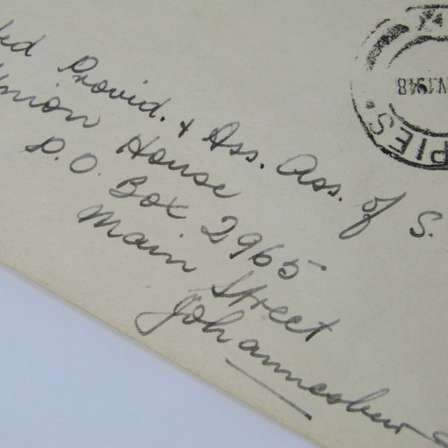 Provid. & Ass. Ass. of S.
Union House
P.O. Box 2965
Main Street
Johannesbur
1948
PIES.